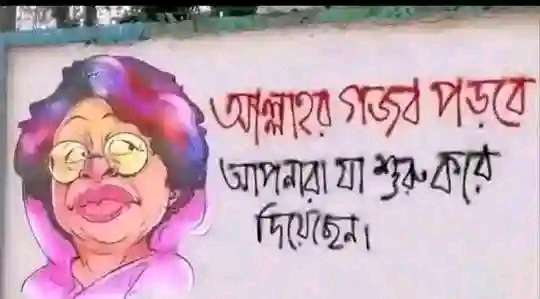 আল্লাহর গজব পড়বে
আপনারা যা শুরু করে
দিয়েছেন।